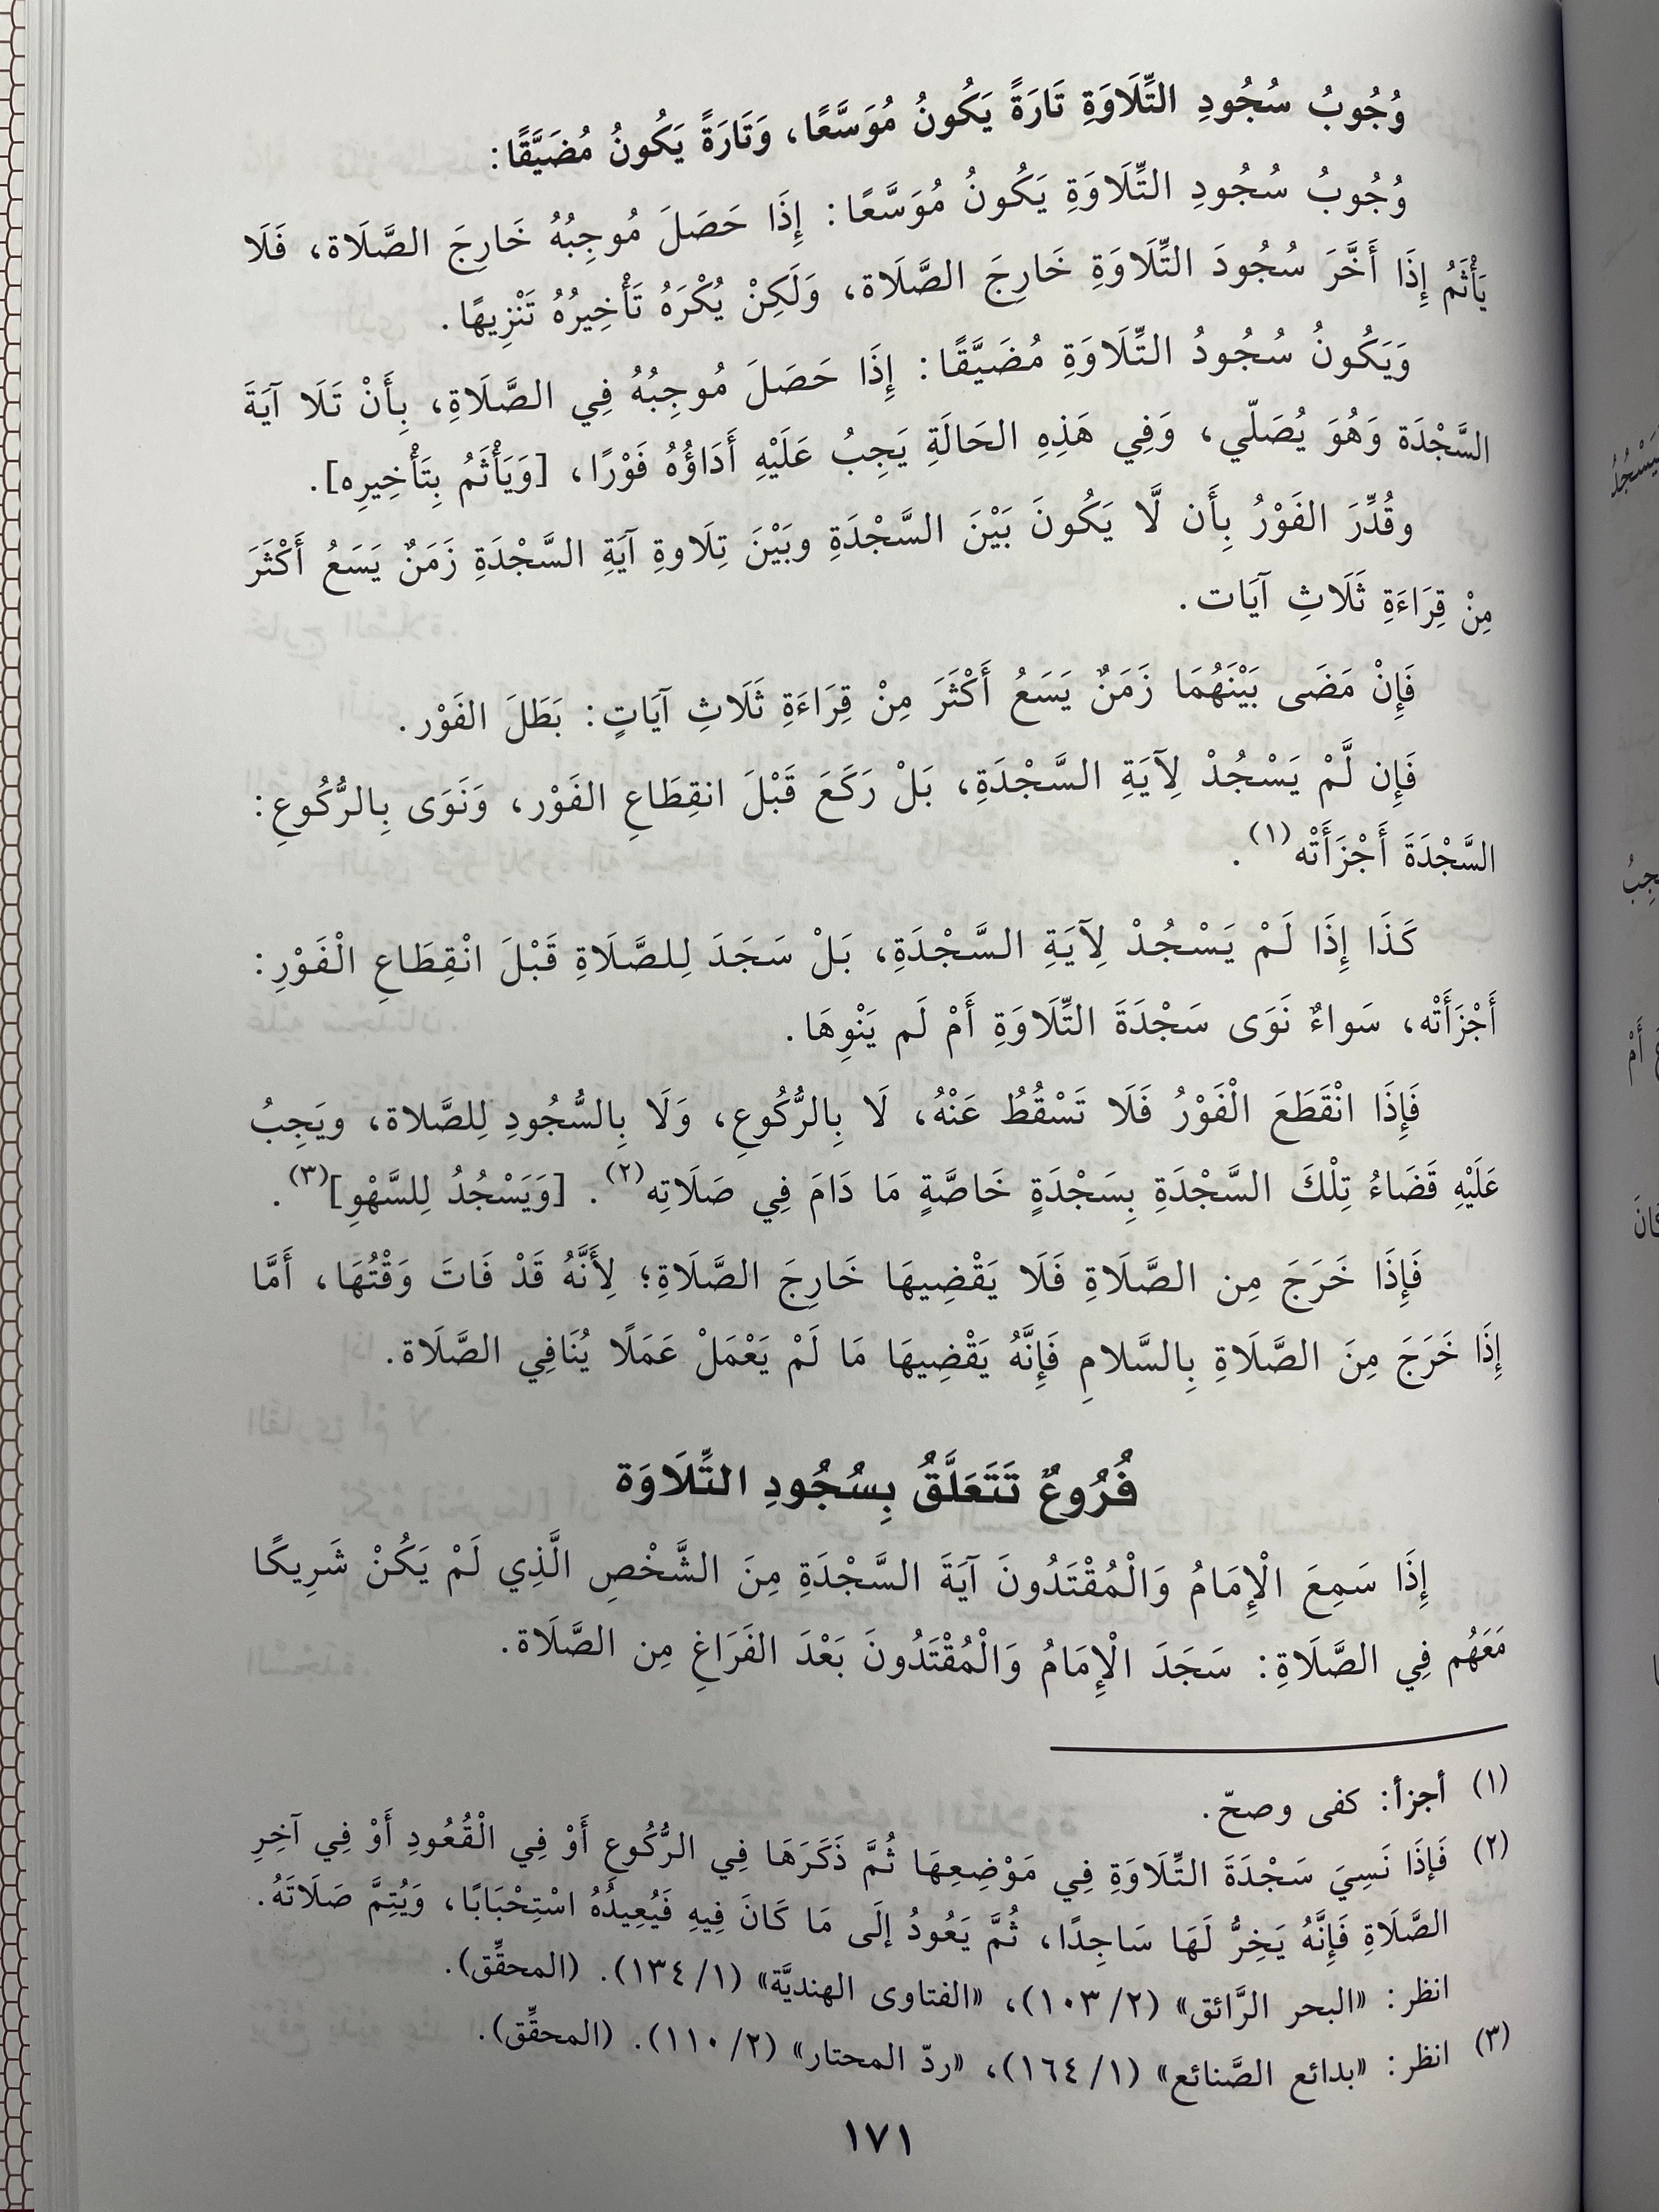 وُجُوبُ سُجُودِ التِّلَاوَةِ تَارَةً يَكُونُ مُوَسَّعًا، وَتَارَةً يَكُونُ مُضَيَّقًا:
وُجُوبُ سُجُودِ التِّلَاوَةِ يَكُونُ مُوَسَّعًا: إِذَا حَصَلَ مُوجِبُهُ خَارِجَ الصَّلَاة، فَلَا
يَأْثَمُ إِذَا أَخَّرَ سُجُودَ التِّلَاوَةِ خَارِجَ الصَّلَاة، وَلَكِنْ يُكْرَهُ تَأْخِيرُهُ تَنْزِيهًا.
وَيَكُونُ سُجُودُ التِّلَاوَةِ مُضَيَّقًا: إِذَا حَصَلَ مُوجِبُهُ فِي الصَّلَاةِ، بِأَنْ تَلَا آيَةَ
السَّجْدَة وَهُوَ يُصَلّي، وَفِي هَذِهِ الحَالَةِ يَجِبُ عَلَيْهِ أَدَاؤُهُ فَوْرًا، [وَيَأْثَمُ بِتَأْخِيرِه].
وقُدِّرَ الفَوْرُ بِأَن لَّا يَكُونَ بَيْنَ السَّجْدَةِ وبَيْنَ تِلَاوةِ آيَةِ السَّجْدَةِ زَمَنٌ يَسَعُ أَكْثَرَ
مِنْ قِرَاءَةِ ثَلَاثِ آيَات.
فَإِنْ مَضَى بَيْنَهُمَا زَمَنٌ يَسَعُ أَكْثَرَ مِنْ قِرَاءَةِ ثَلَاثِ آيَاتٍ: بَطَلَ الفَوْر.
فَإِن لَّمْ يَسْجُدْ لِآيَةِ السَّجْدَةِ، بَلْ رَكَعَ قَبْلَ انقِطَاعِ الفَوْر، وَنَوَى بِالرُّكُوعِ:
السَّجْدَةَ أَجْزَأَتْه(١).
كَذَا إِذَا لَمْ يَسْجُدْ لِآيَةِ السَّجْدَةِ، بَلْ سَجَدَ لِلصَّلَاةِ قَبْلَ انْقِطَاعِ الْفَوْرِ:
أَجْزَأَتْه، سَواءٌ نَوَى سَجْدَةَ التِّلَاوَةِ أَمْ لَم يَنْوِهَا.
فَإِذَا انْقَطَعَ الْفَوْرُ فَلَا تَسْقُطُ عَنْهُ، لَا بِالرُّكُوعِ، وَلَا بِالسُّجُودِ لِلصَّلاة، ويَجِبُ
عَلَيْهِ قَضَاءُ تِلْكَ السَّجْدَةِ بِسَجْدَةٍ خَاصَّةٍ مَا دَامَ فِي صَلَاتِه(٢). [وَيَسْجُدُ لِلسَّهْوِ](٣).
فَإِذَا خَرَجَ مِن الصَّلَاةِ فَلَا يَقْضِيهَا خَارِجَ الصَّلَاةِ؛ لِأَنَّهُ قَدْ فَاتَ وَقْتُهَا، أَمَّا
إِذَا خَرَجَ مِنَ الصَّلَاةِ بِالسَّلامِ فَإِنَّهُ يَقْضِيهَا مَا لَمْ يَعْمَلْ عَمَلًا يُنَافِي الصَّلَاة.
فُرُوعٌ تَتَعَلَّقُ بِسُجُودِ التِّلَاوَة
إِذَا سَمِعَ الْإِمَامُ وَالْمُقْتَدُونَ آيَةَ السَّجْدَةِ مِنَ الشَّخْصِ الَّذِي لَمْ يَكُنْ شَرِيكًا
مَعَهُم فِي الصَّلَاةِ: سَجَدَ الْإِمَامُ وَالْمُقْتَدُونَ بَعْدَ الفَرَاغِ مِن الصَّلَاة.
(١) أجزأ: كفى وصحّ.
(٢) فَإذَا نَسِيَ سَجْدَةَ التِّلَاوَةِ فِي مَوْضِعِهَا ثُمَّ ذَكَرَهَا فِي الرُّكُوعِ أَوْ فِي الْقُعُودِ أَوْ فِي آخِرِ
الصَّلَاةِ فَإِنَّهُ يَخِرُّ لَهَا سَاجِدًا، ثُمَّ يَعُودُ إلَى مَا كَانَ فِيهِ فَيُعِيدُهُ اسْتِحْبَابًا، وَيُتِمَّ صَلَاتَهُ.
انظر: «البحر الرَّائق» (١٠٣/٢)، «الفتاوى الهنديَّة» (١٣٤/١). (المحقِّق).
(٣) انظر: «بدائع الصَّنائع» (١٦٤/١)، «ردّ المحتار» (١١٠/٢). (المحقِّق).
١٧١